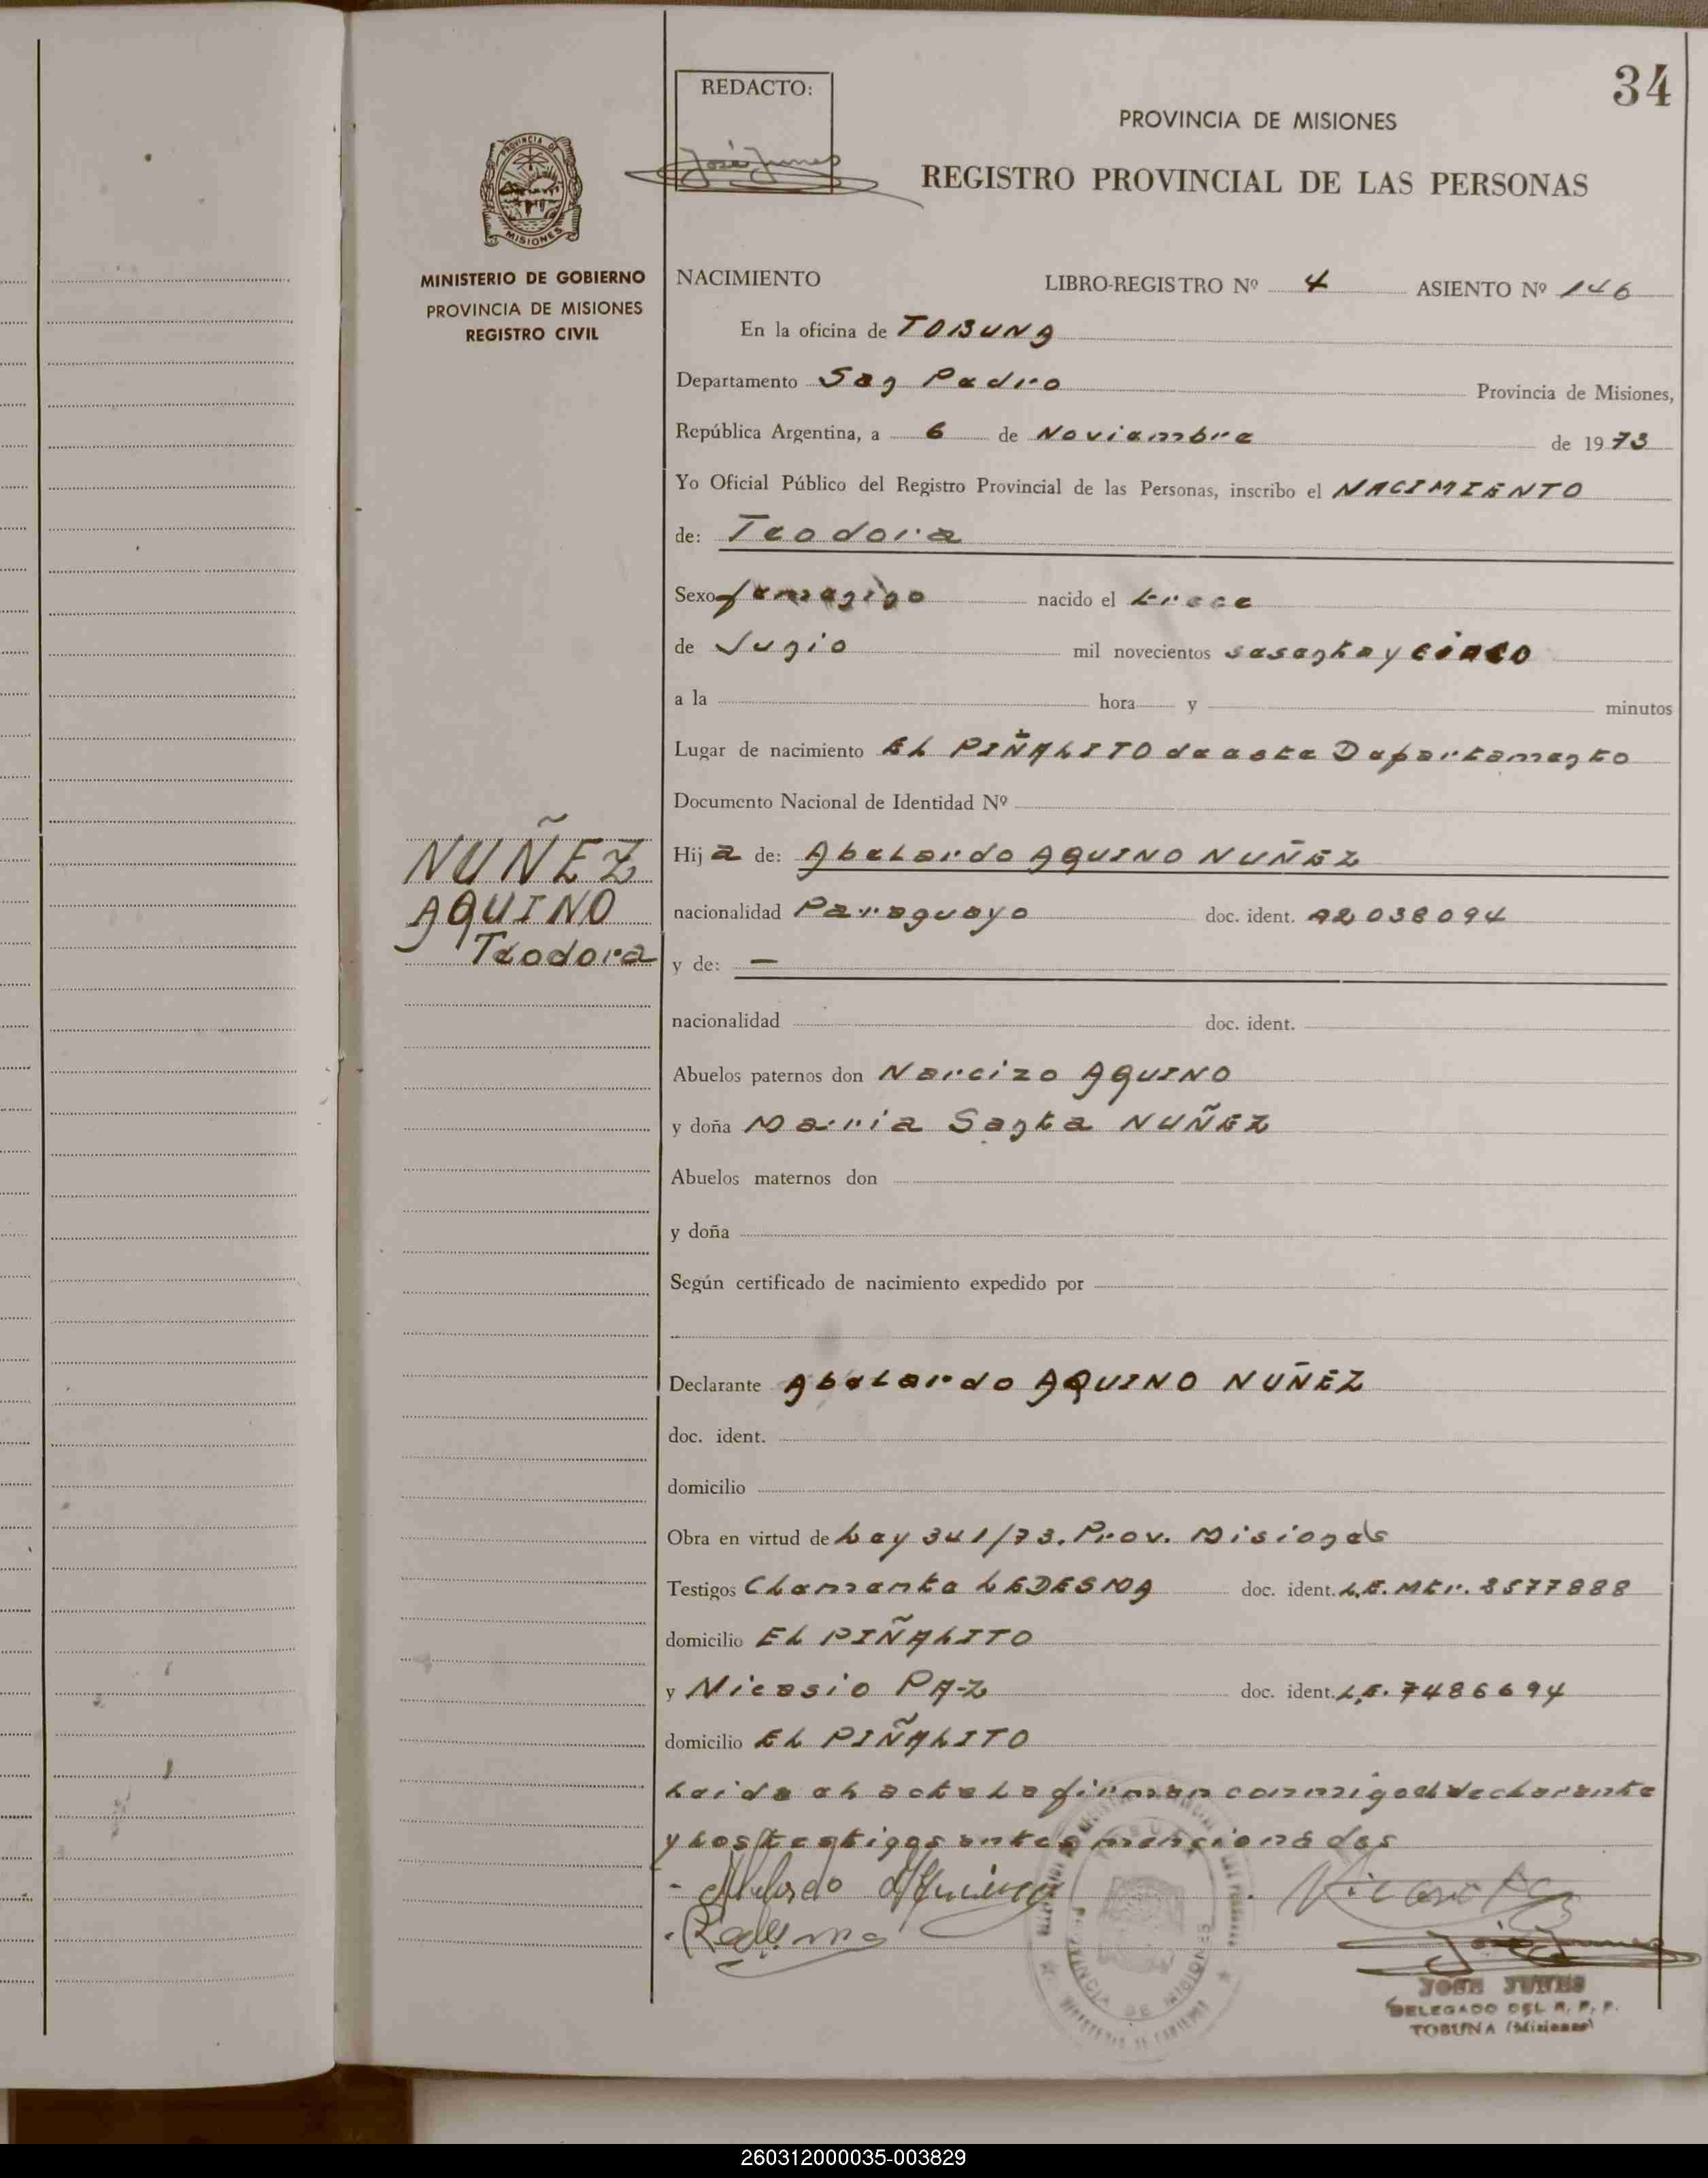 34
REDACTO:
José Junes
PROVINCIA DE MISIONES
REGISTRO PROVINCIAL DE LAS PERSONAS
PROVINCIA DE
MISIONES
MINISTERIO DE GOBIERNO
PROVINCIA DE MISIONES
REGISTRO CIVIL
NACIMIENTO LIBRO-REGISTRO Nº 4 ASIENTO Nº 146
En la oficina de TOBUNA
Departamento San Pedro Provincia de Misiones,
República Argentina, a 6 de Noviembre de 1973
Yo Oficial Público del Registro Provincial de las Personas, inscribo el NACIMIENTO
de: Teodora
Sexo femenino nacido el trece
de Junio mil novecientos sesenta y cinco
a la hora y minutos
Lugar de nacimiento EL PIÑALITO de este Departamento
Documento Nacional de Identidad Nº
NUÑEZ
AQUINO
Teodora
Hija de: Abelardo AQUINO NUÑEZ
nacionalidad Paraguayo doc. ident. 92 038094
y de: —
nacionalidad doc. ident.
Abuelos paternos don Narcizo AQUINO
y doña Maria Santa NUÑEZ
Abuelos maternos don
y doña
Según certificado de nacimiento expedido por
Declarante Abelardo AQUINO NUÑEZ
doc. ident.
domicilio
Obra en virtud de Ley 341/73. Prov. Misiones
Testigos Clemente LEDESMA doc. ident. L.E. Mtr. 8577888
domicilio EL PIÑALITO
y Nicasio PAZ doc. ident. L.E. 7486694
domicilio EL PIÑALITO
Leida el acta la firman conmigo el declarante
y los testigos antes mencionados
JOSE JUNES
DELEGADO DEL R. P. P.
TOBUNA (Misiones)
260312000035-003829